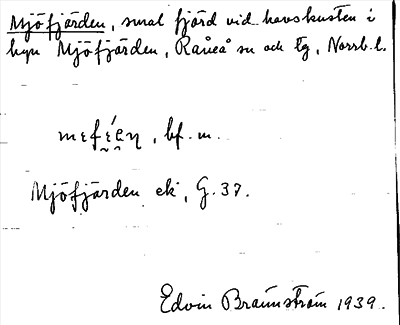 Mjöfjärden, smal fjärd vid havskusten i
byn Mjöfjärden, Råneå sn och tg, Norrb. l.
, bf. m.
Mjöfjärden ek, G. 37.
Edvin Brännström 1939.